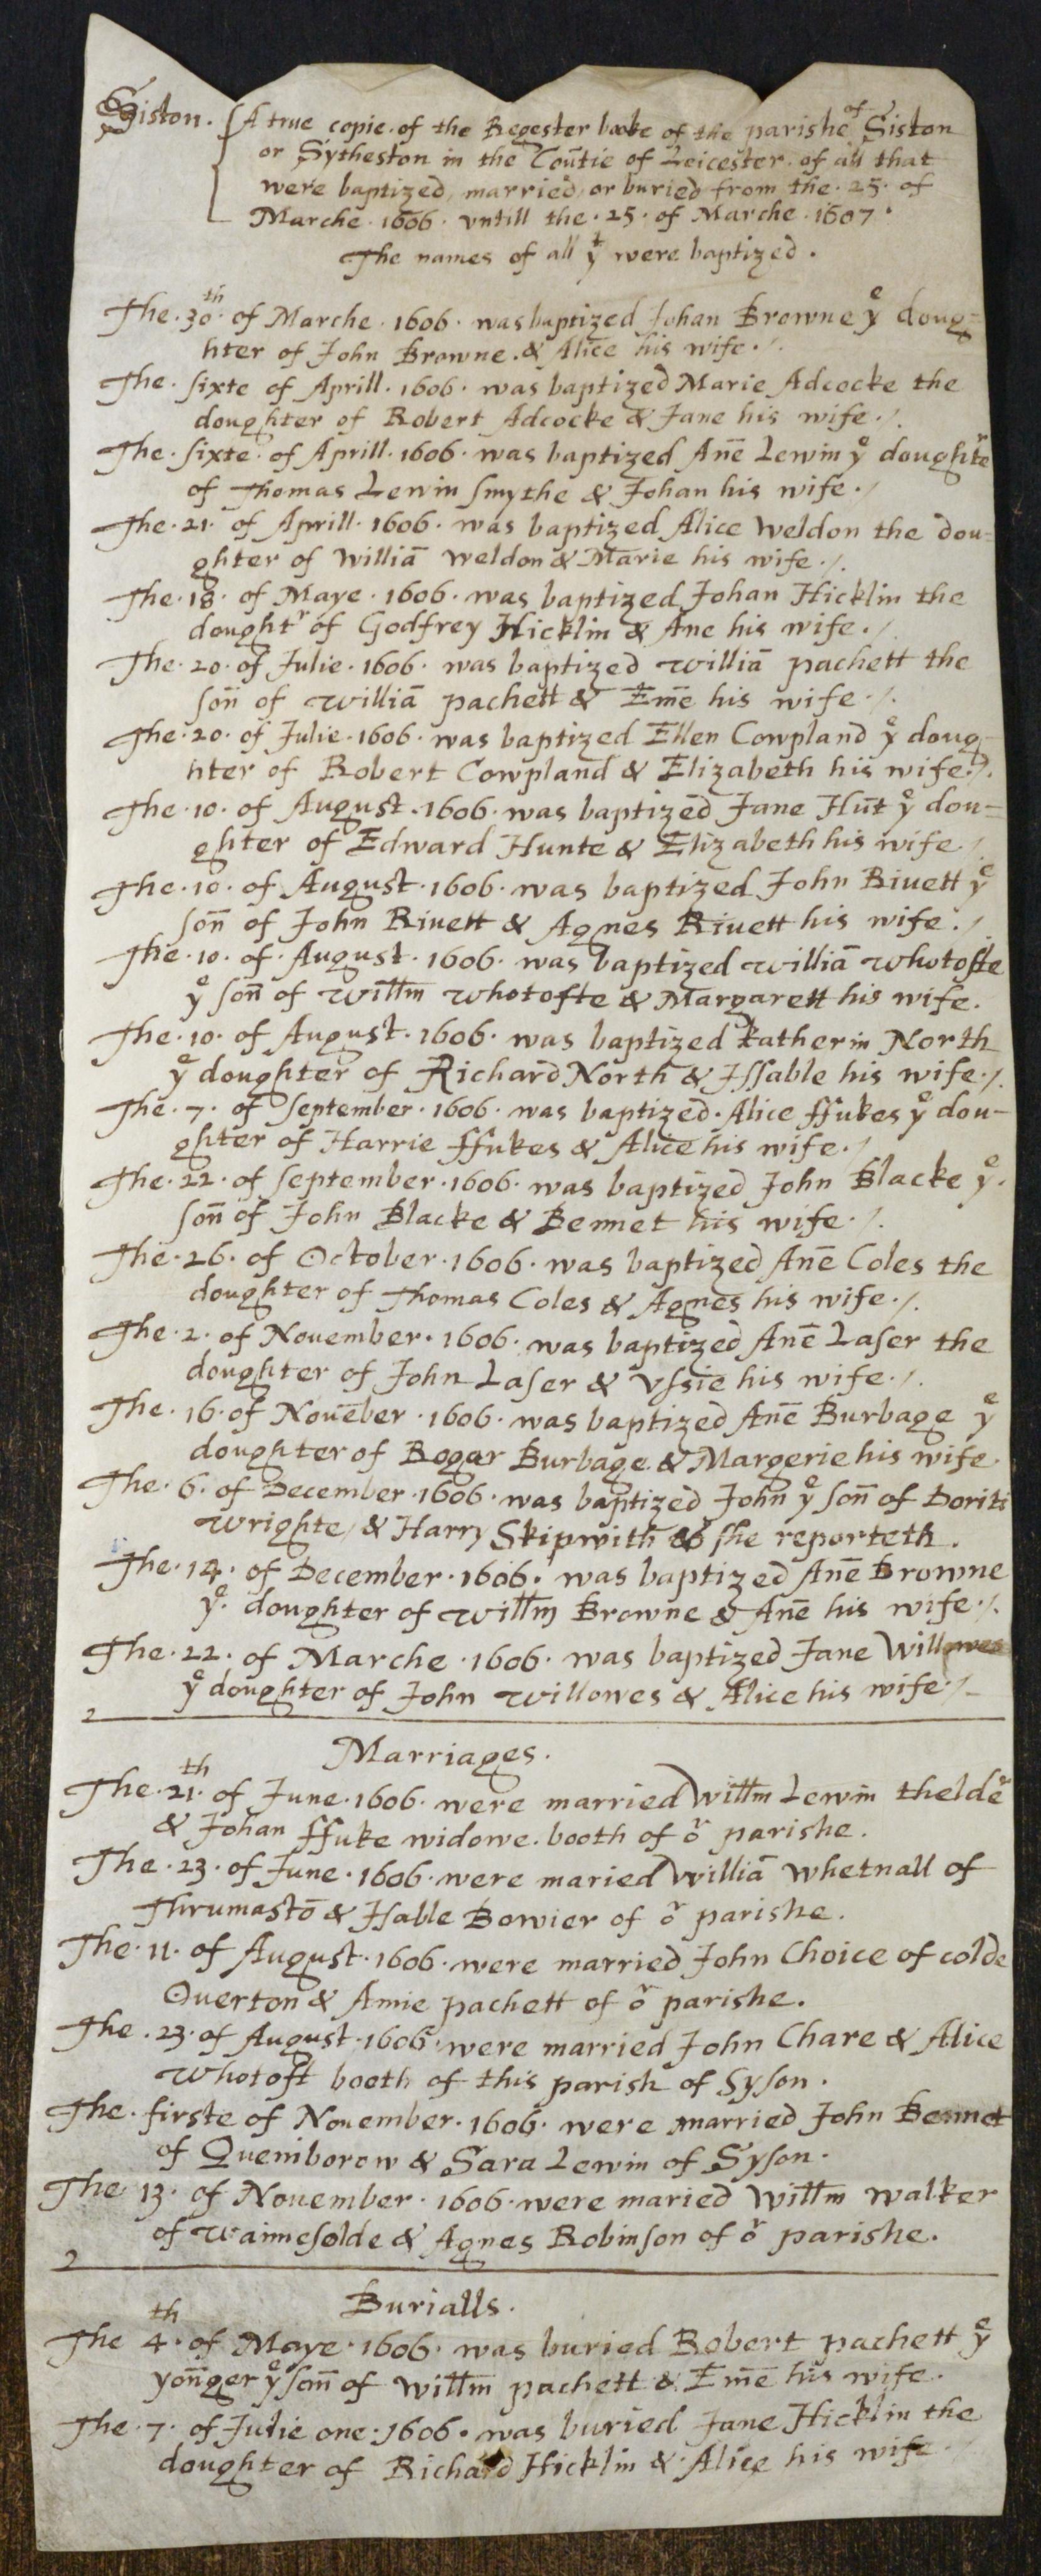 Siston. A true copie of the Regester booke of the parishe of Siston
or Sytheston in the Coũtie of Leicester of all that
were baptized, married, or buried from the .25. of
Marche .1606. vntill the .25. of Marche .1607.
The names of all yt were baptized.
The .30th. of Marche .1606. was baptized Johan Browne ye doug=
hter of John Browne & Alice his wife./.
The. sixte of Aprill. 1606. was baptized Marie Adcocke the
doughter of Robert Adcocke & Jane his wife./.
The. sixte. of Aprill. 1606. was baptized Anē Lewin ye doughter
of Thomas Lewin smythe & Johan his wife./
The .21. of Aprill. 1606. was baptized Alice Weldon the dou=
ghter of Williā Weldon & Marie his wife./.
The .18. of Maye .1606. was baptized Johan Hicklin the
doughtr of Godfrey Hicklin & Ane his wife./
The .20. of Julie .1606. was baptized Williā pachett the
soñ of Williā pachett & Em̄e his wife./.
The .20. of Julie .1606. was baptized Ellen Cowpland ye doug-
hter of Robert Cowpland & Elizabeth his wife./.
The .10. of August .1606. was baptized Jane Hūt ye dou=
ghter of Edward Hunte & Elizabeth his wife./.
The .10. of August .1606. was baptized John Riuett ye
soñ of John Riuett & Agnes Riuett his wife./
The .10. of August .1606. was baptized Williā Whotofte
ye soñ of Willm Whotofte & Margarett his wife.
The .10. of August .1606. was baptized Katherin North
ye doughter of Richard North & Issable his wife./.
The .7. of September .1606. was baptized. Alice ffukes ye dou-
ghter of Harrie ffukes & Alice his wife./
The .22. of September .1606. was baptized John Blacke ye.
soñ of John Blacke & Bennet his wife./.
The .26. of October .1606. was baptized Anē Coles the
doughter of Thomas Coles & Agnes his wife./.
The .2. of Nouember .1606. was baptized Anē Laser the
doughter of John Laser & Vssie his wife./.
The .16. of Nouēber .1606. was baptized Anē Burbage ye
doughter of Rogar Burbage & Margerie his wife.
The .6. of December .1606. was baptized John ye soñ of Doriti
Wrighte, & Harry Skipwith as she reporteth.
The .14. of December .1606. was baptized Anē Browne
ye. doughter of Willm Browne & Anē his wife./.
The .22. of Marche .1606. was baptized Jane Willowes
ye doughter of John Willowes & Alice his wife./
2
Marriages.
The .21th. of June .1606. were married Willm Lewin thelder
& Johan ffuke widowe. booth of or parishe.
The .23. of June .1606. were maried Williā Whetnall of
Thrumastō & Isable Bowier of or parishe.
The .11. of August .1606. were married John Choice of colde
Ouerton & Amie pachett of or parishe.
The .23. of August .1606. were married John Chare & Alice
Whotoft booth of this parish of Syson.
The. firste of Nouember .1606. were married John Bennet
of Queniborow & Sara Lewin of Syson.
The 13. of Nouember .1606. were maried Willm Walker
of Waimesolde & Agnes Robinson of or parishe.
2
Burialls.
The 4th. of Maye .1606. was buried Robert pachett ye
yoñger ye soñ of Willm pachett & Em̄e his wife.
The .7. of Julie one .1606. was buried Jane Hicklin the
doughter of Richard Hicklin & Alice his wife